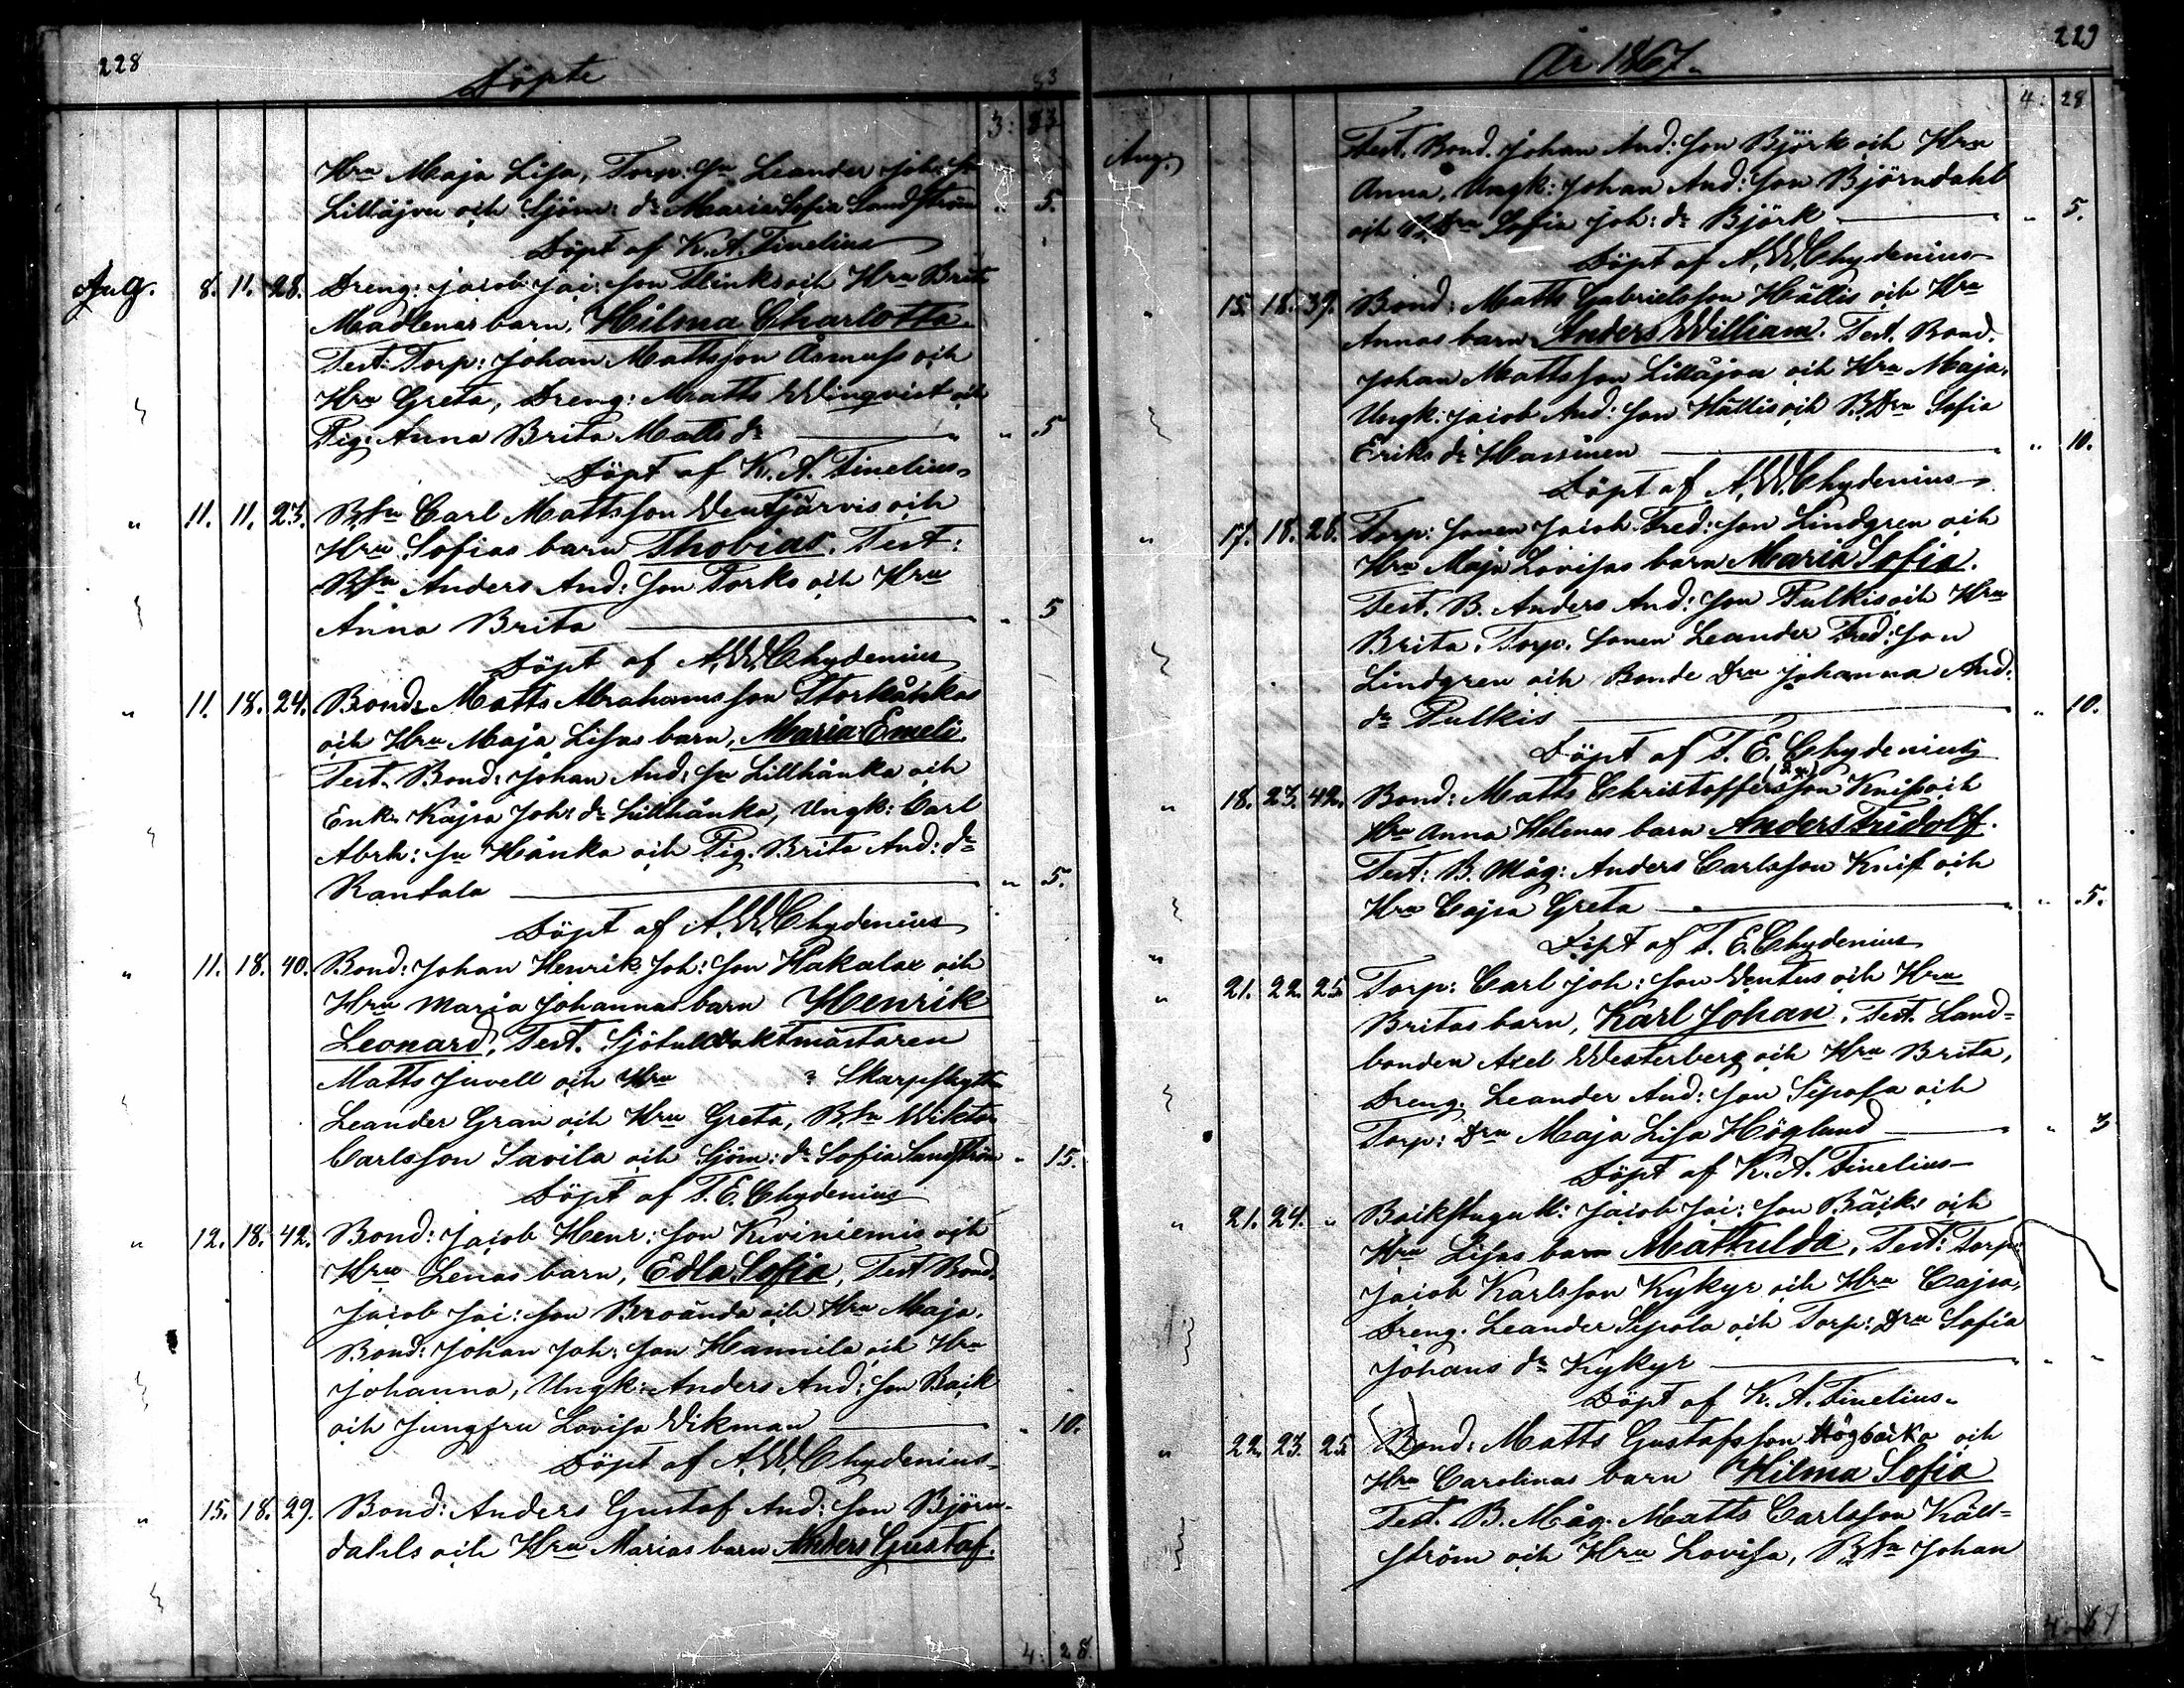 228
Döpte
3: 83
Hru Maja Lisa, Torp: Sn Leander Joh: Sn
Lillåjvu och Sjöm: dr Maria Sofia Sandström " 5.
Döpt af K. A. Finelius
Aug. 8. 11. 28. Dreng: Jacob Jac: Son Flinks och Hru Brita
Madlenas barn, Hilma Charlotta.
Test. Torp: Johan Mattsson Åsmuss och
Hru Greta, Dreng: Matts Winqvist och
Pig: Anna Brita Matts dr " 5
Döpt af K. A. Finelius
" 11. 11. 23. B.Sn Carl Mattsson Wentjärvis och
Hru Sofias barn Thobias. Test:
B.Sn Anders And: Son Torks och Hru
Anna Brita " 5
Döpt af A. W. Chydenius
" 11. 18. 24. Bond: Matts Abrahamsson Storhånkas
och Hru Maja Lisas barn, Maria Emeli.
Test. Bond: Johan And: Sn Lillhånka och
Enk. Kajsa Joh: dr Lillhånka, Ungk: Carl
Abrh: Sn Hånka och Pig. Brita And: dr
Rantala " 5.
Döpt af A. W. Chydenius
" 11. 18. 40. Bond: Johan Henrik Joh: Son Hakalax och
Hru Maria Johannas barn Henrik
Leonard, Test. Sjötullvaktmästaren
Matts Juvell och Hru ? Skarpskytt.
Leander Gran och Hru Greta, B.Sn Wiktor
Carlsson Savila och Sjöm: dr Sofia Sandström " 15.
Döpt af T. E. Chydenius
" 12. 18. 42. Bond: Jacob Henr: Son Kiviniemis och
Hru Lenas barn, Edla Sofia, Test Bond.
Jacob Jac: Son Broända och Hru Maja.
Bond: Johan Joh: Son Hannila och Hru
Johanna, Ungk: Anders And: Son Back
och Jungfru Lovisa Wikman " 10.
Döpt af A. W. Chydenius
" 15. 18. 29. Bond: Anders Gustaf And: Son Björn-
dahls och Hru Marias barn Anders Gustaf.
4: 28.
229
År 1867.
4: 28
Aug. Test. Bond. Johan And: Son Björk och Hru
Anna, Ungk: Johan And: Son Björndahl
och B.Dru Sofia Joh: dr Björk " 5.
Döpt af A. W. Chydenius
" 15. 18. 39. Bond: Matts Gabrielsson Hällis och Hru
Annas barn Anders William. Test. Bond.
Johan Mattsson Lillåjvu och Hru Maja.
Ungk: Jacob And: Son Hällis och B.Dru Sofia
Eriks dr Hassinen " 10.
Döpt af A. W. Chydenius
" 17. 18. 28. Torp: Sonen Jacob Fred: Son Lindgren och
Hru Maja Lovisas barn Maria Sofia.
Test. B. Anders And: Son Pulkis och Hru
Brita. Torp. Sonen Leander Fred: Son
Lindgren och Bonde Dru Johanna And:
dr Pulkis " 10.
Döpt af T. E. Chydenius
" 18. 23. 42. Bond: Matts Christoffersson Knifs och
Hru Anna Helenas barn Anders Fridolf.
Test: B. Måg: Anders Carlsson Knif och
Hru Cajsa Greta " 5.
Döpt af T. E. Chydenius
" 21. 22. 25. Torp: Carl Joh: Son Wentus och Hru
Britas barn, Karl Johan. Test. Land-
bonden Axel Westerberg och Hru Brita,
Dreng. Leander And: Son Sipola och
Torp: Dru Maja Lisa Höglund " 3
Döpt af K. A. Finelius
" 21. 24. " Backstuguk: Jacob Jac: Son Bäcks och
Hru Lisas barn Mathilda, Test: Torp:
Jacob Karlsson Kykyr och Hru Cajsa,
Dreng. Leander Sipola och Torp: Dru Sofia
Johans dr Kykyr " "
Döpt af K. A. Finelius
" 22. 23. 25. Bond: Matts Gustafsson Högbacka och
Hru Carolinas barn Hilma Sofia
Test. B. Måg. Matts Carlsson Käll-
ström och Hru Lovisa, B.Sn Johan
4. 61